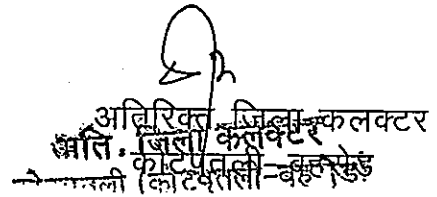 अतिरिक्त जिला कलक्टर
अति. जिला कलेक्टर
कोटपूतली-बहरोड़
(कोटपूतली-बहरोड़)